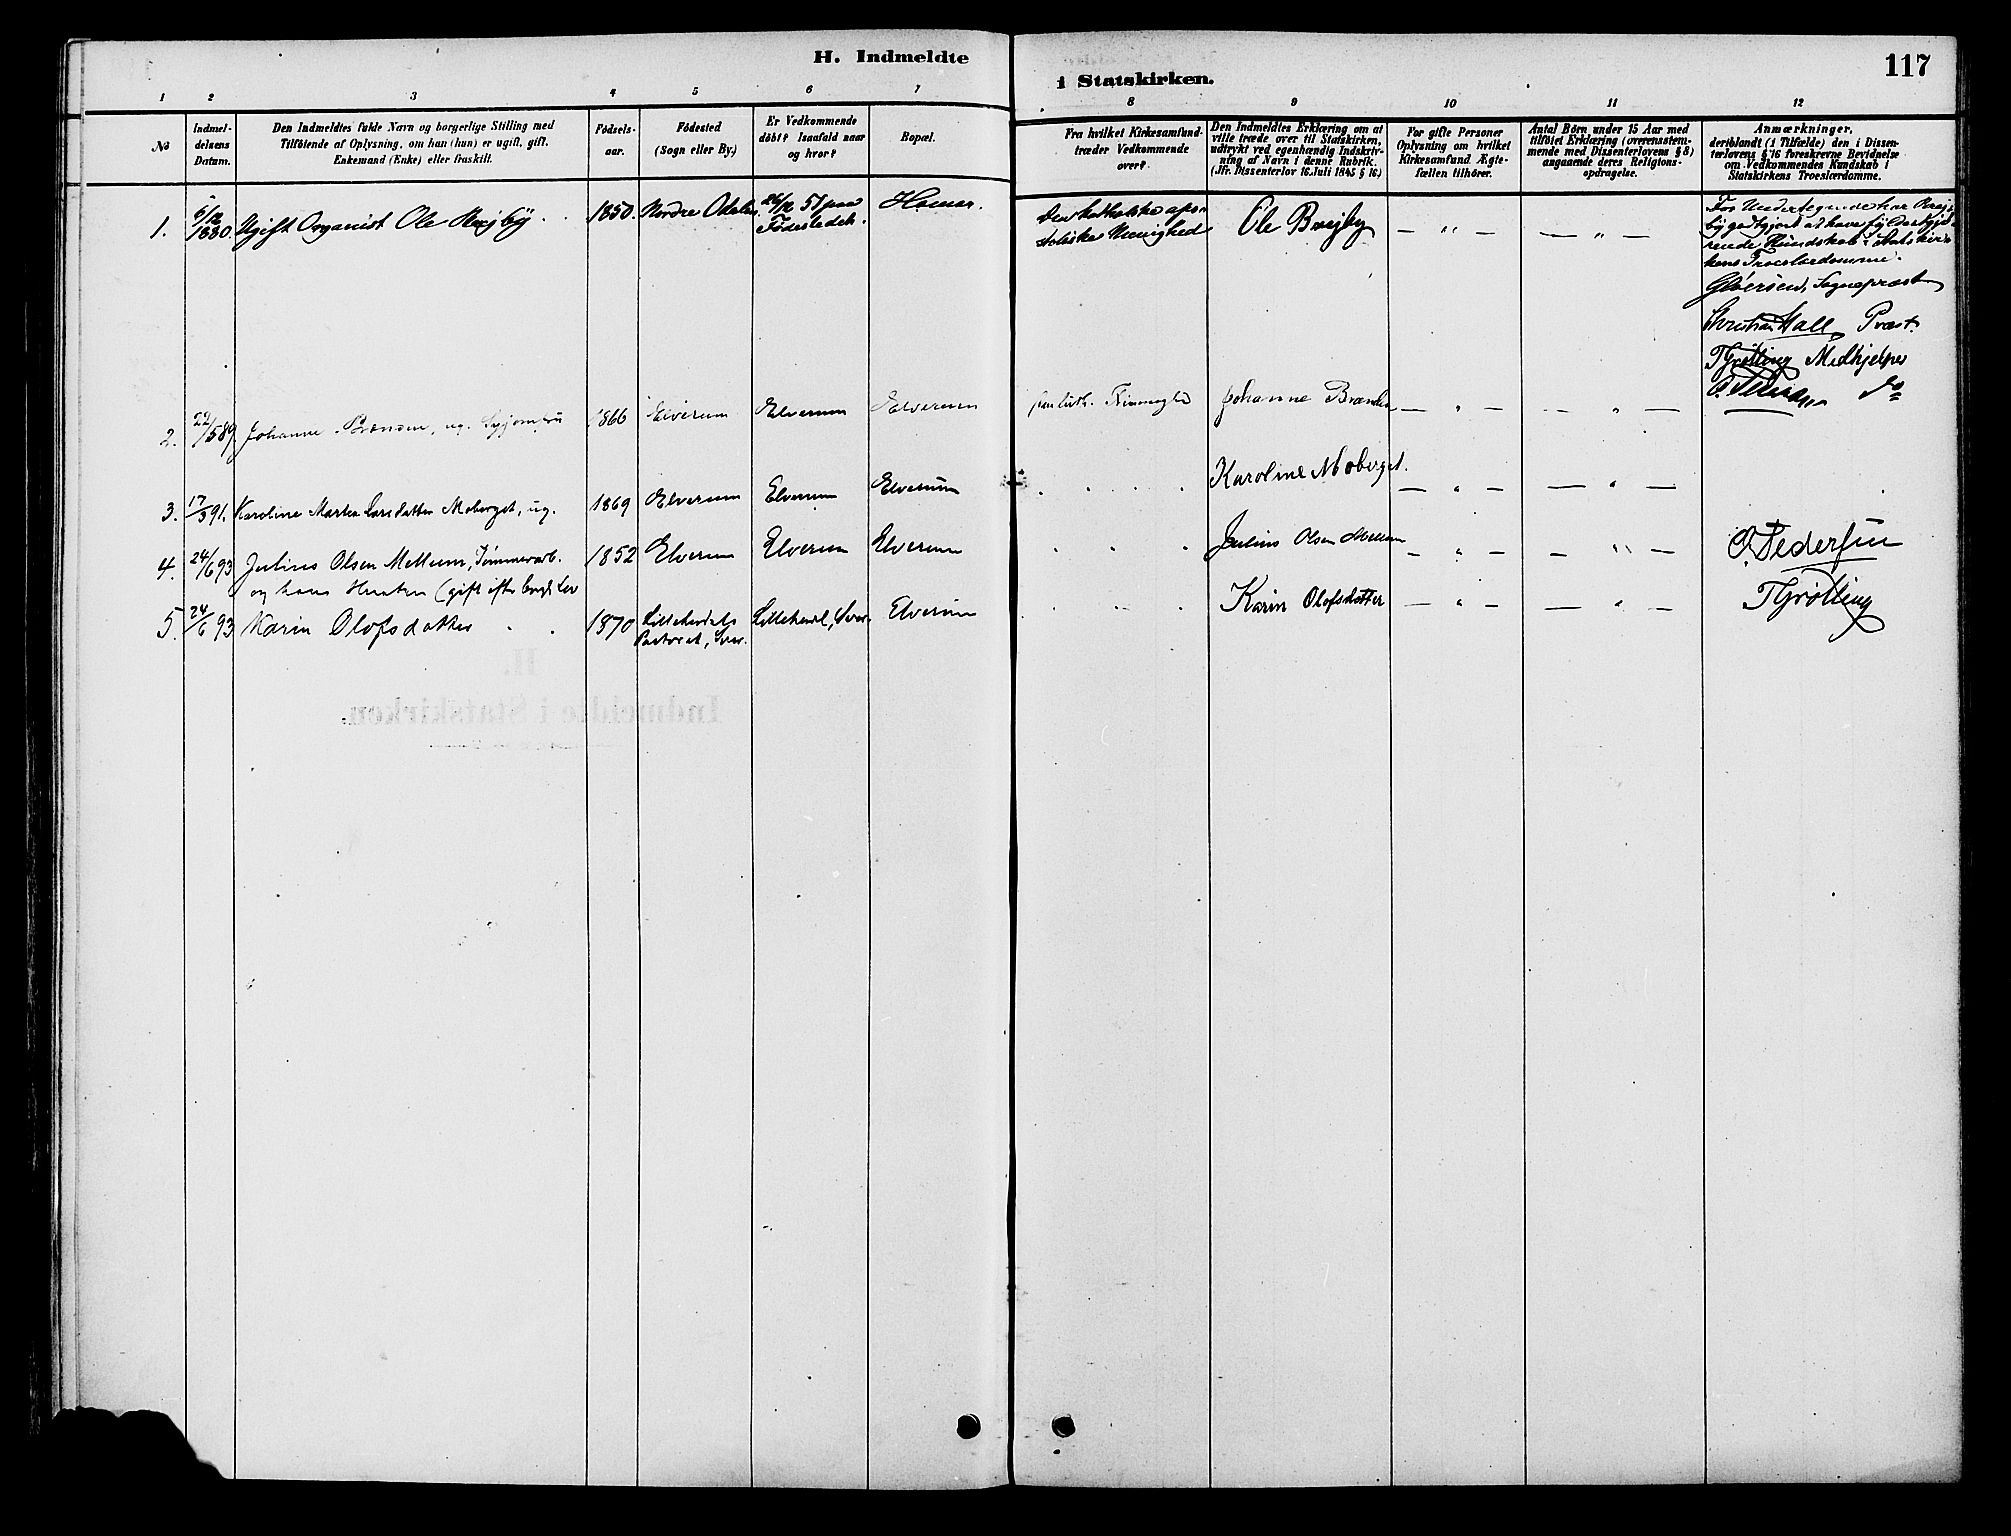 H. Indmeldte
i Statskirken.
117
1 2 3 4 5 6 7 8 9 10 11 12
No
Indmel-
delsens
Datum.
Den Indmeldtes fulde Navn og borgerlige Stilling med
Tilföiende af Oplysning, om han (hun) er ugift, gift,
Enkemand (Enke) eller fraskilt.
Födsels-
aar.
Födested
(Sogn eller By.)
Er Vedkommende
döbt? Isaafald naar
og hvor?
Bopæl.
Fra hvilket Kirkesamfund
træder Vedkommende
over?
Den Indmeldtes Erklæring om at
ville træde over til Statskirken,
udtrykt ved egenhændig Indskriv-
ning af Navn i denne Rubrik.
(Jfr. Dissenterlov 16. Juli 1845 § 16.)
For gifte Personer
Oplysning om hvilket
Kirkesamfund Ægte-
fællen tilhörer.
Antal Börn under 15 Aar med
tilföiet Erklæring (overensstem-
mende med Dissenterlovens § 8)
angaaende deres Religions-
opdragelse.
Anmærkninger,
deriblandt (i Tilfælde) den i Dissen-
terlovens § 16 foreskrevne Bevidnelse
om Vedkommendes Kundskab i
Statskirkens Troeslærdomme.
1. 6/12 1880. Ugift Organist Ole Brejby 1850. Nordre Odalen. 26/12 51 paa
Födestedet. Hamar. Den katholske apo-
stoliske Menighed Ole Brejby — " — — " —
For Undertegnede har Brej-
by godtgjort at have fyldestgjö-
rende Kundskab i Statskir-
kens Troeslærdomme.
Sognepræst
Christian Hall, Præst.
T Grötting Medhjelper
O. Pedersen do
2. 22/5 89. Johanne ug. Syjomfru 1866 Elverum Elverum Elverum Johanne — " — — " —
3. 17/3 91. Karoline Martea Larsdatter Moberget, ug. 1869 Elverum Elverum Elverum " " " Karoline Moberget. — " — — " —
4. 24/6 93 Julius Olsen Mellum, Tömmerarb. 1852 Elverum Elverum Elverum " " " Julius Olsen Mellum — " — — " — O. Pedersen
og hans Hustru (gift efter borgl. Lov
5. 24/6 93 Karin Olofsdatter 1870 Lillehærdals
Pastorat, Sver. Lillehærdal, Sver. Elverum " " " Karin Olofsdatter — " — — " — T Grötting
H.
Indmeldte i Statskirken.